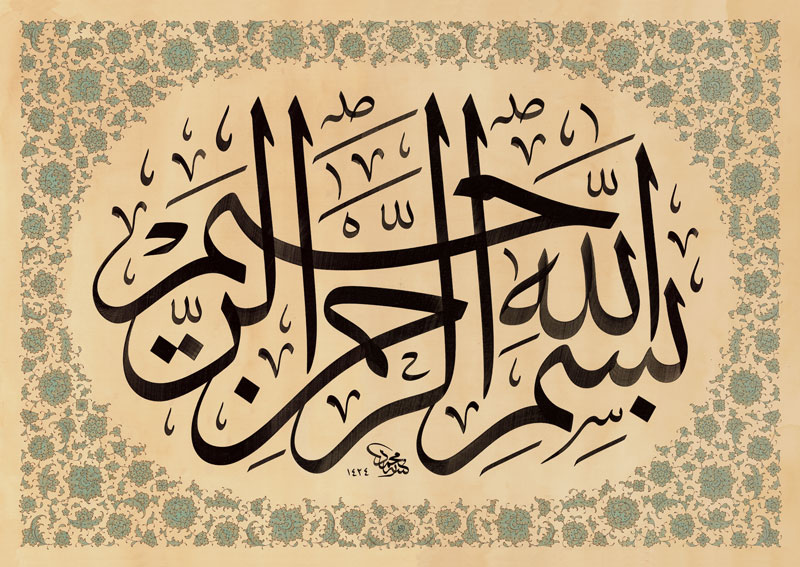 بِسْمِ اللَّهِ الرَّحْمَٰنِ الرَّحِيمِ
١٤٢٤